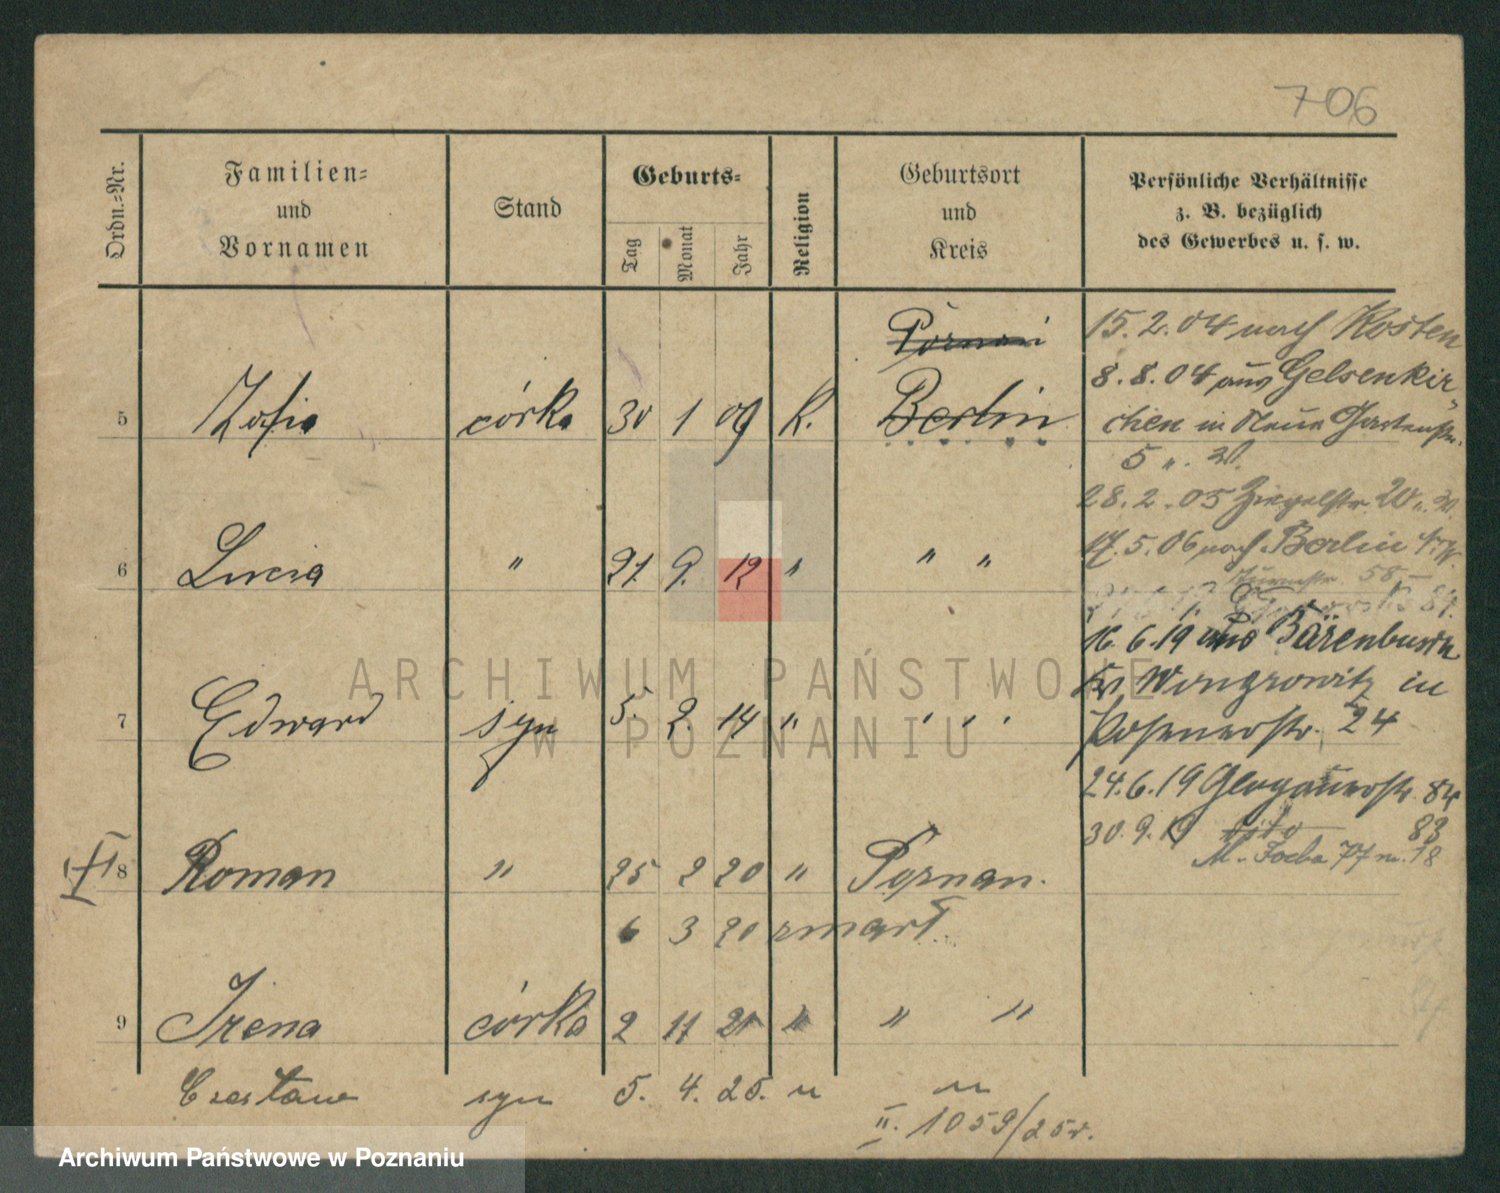 706
Ordn.-Nr.
Familien-
und
Vornamen
Stand
Geburts-
Tag
Monat
Jahr
Religion
Geburtsort
und
Kreis
Persönliche Verhältnisse
z. B. bezüglich
des Gewerbes u. s. w.
Poznań
5 Zofia córka 30 1 09 K. Berlin
6 Lucia " 21. 9. 12 " " "
7 Edward syn 5. 2. 14 " " " "
8 Roman " 25 2 20 " Poznan.
6 3 20 zmarł
9 Irena córka 2 11 21 " " "
Czesław syn 5. 4. 25. " "
II. 1059/25r.
15.2.04 nach Kosten
8.8.04 aus Gelsenkir-
chen in Neue Gartenstr.
5
28.2.05 Ziegelstr. 20
17.5.06 nach Berlin
58
16.6.19 aus Bärenbusch
Kr Wongrowitz in
Posenerstr. 24
24.6.19 Glogauerstr. 84
30.9.19 dito 83
M. Focha 77 m. 18
ARCHIWUM PAŃSTWOWE
W POZNANIU
Archiwum Państwowe w Poznaniu